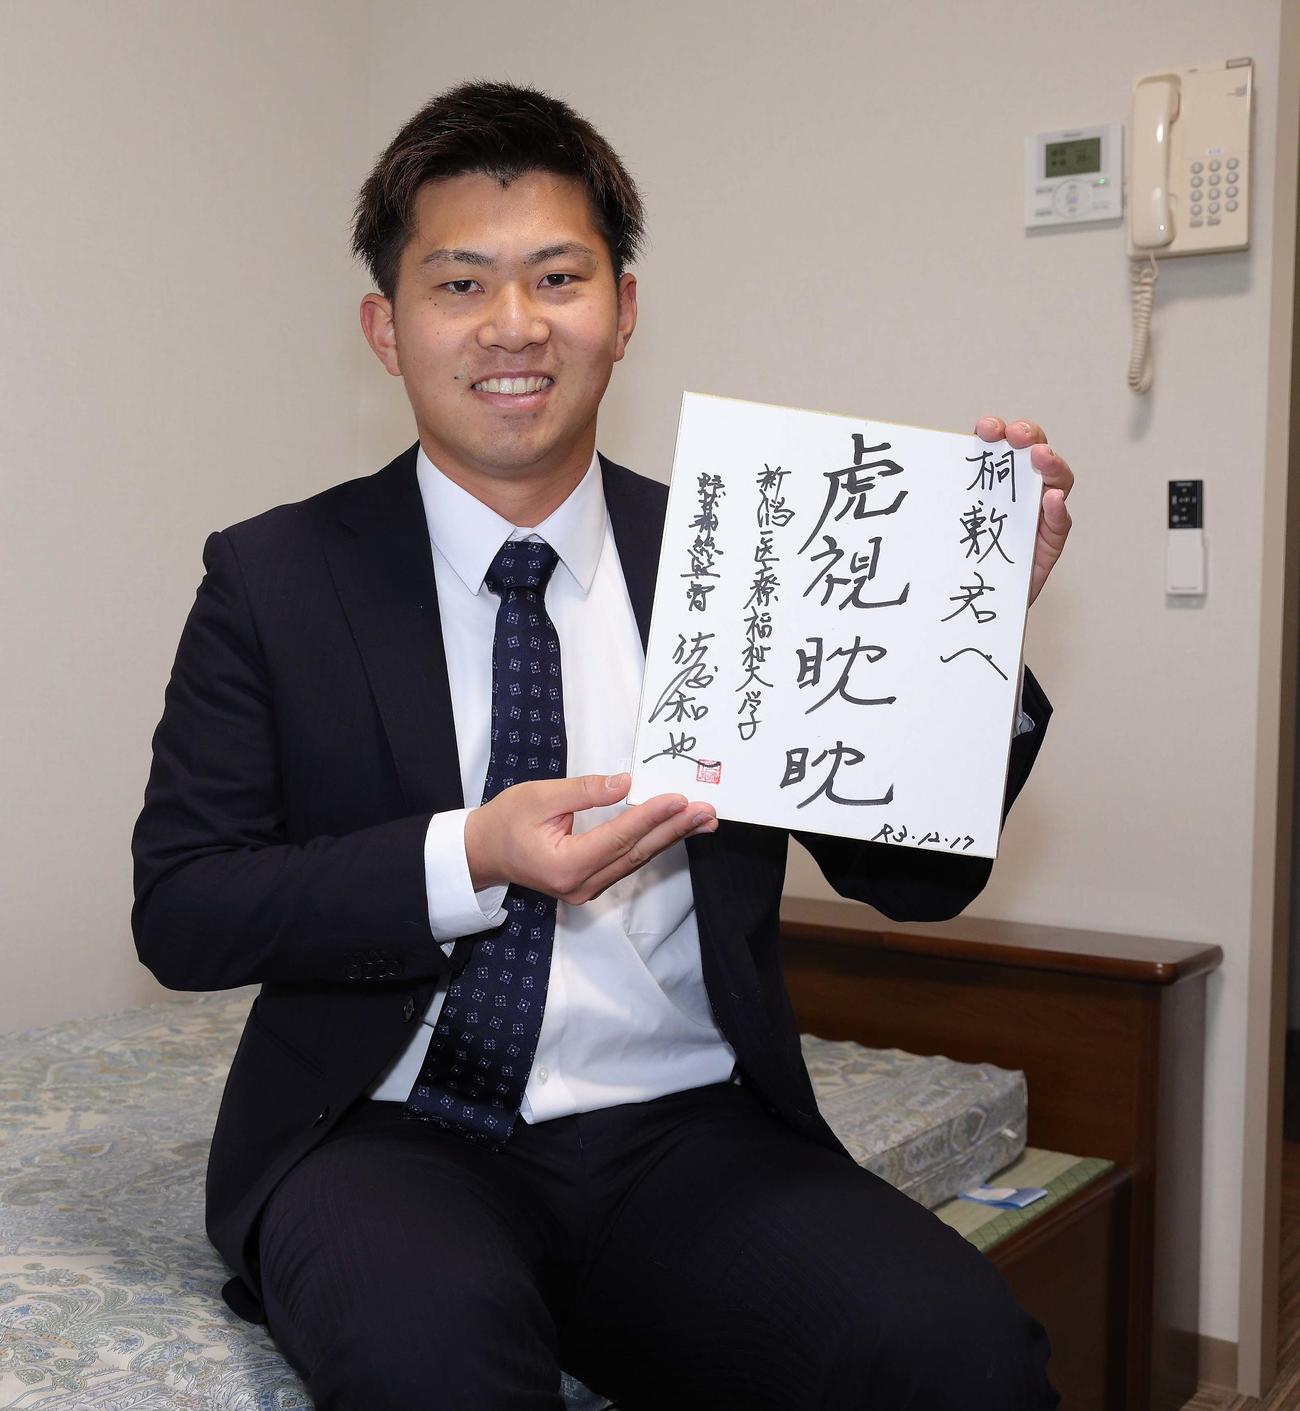 桐敷君へ
虎視眈眈
新潟医療福祉大学
野球部総監督
佐藤和也
R3.12.17